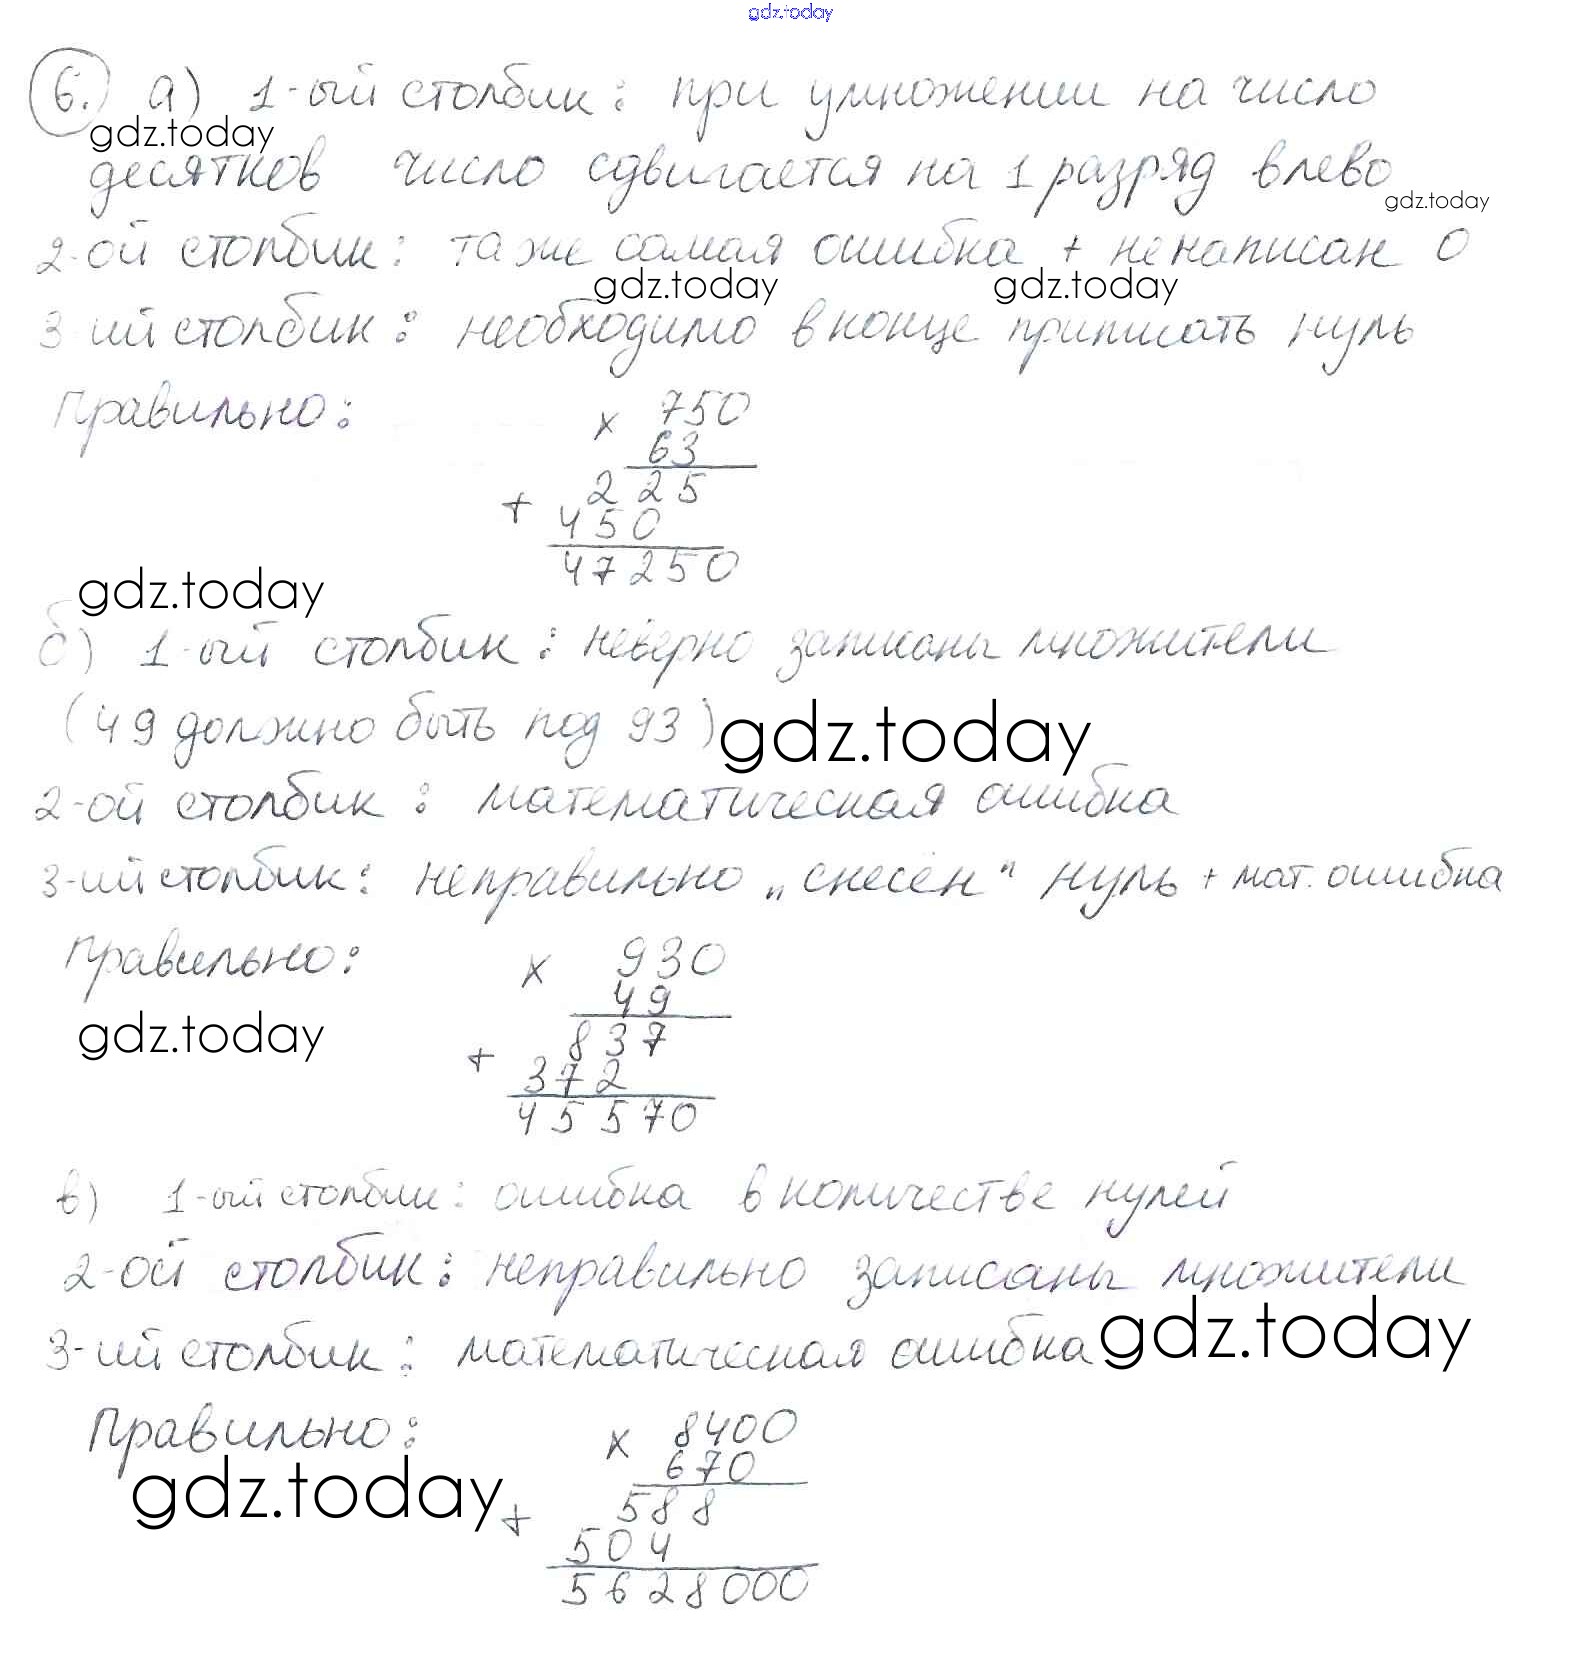 gdz.today
6. а) 1-ый столбик: при умножении на число
gdz.today
десятков число сдвигается на 1 разряд влево
gdz.today
2-ой столбик: та же самая ошибка + не написан 0
gdz.today gdz.today
3-ий столбик: необходимо в конце приписать нуль
Правильно: × 750
63
+ 225
450
47250
gdz.today
б) 1-ый столбик: неверно записаны множители
(49 должно быть под 93) gdz.today
2-ой столбик: математическая ошибка
3-ий столбик: неправильно „снесён" нуль + мат. ошибка
Правильно: × 930
49
gdz.today
+ 837
372
45570
в) 1-ый столбик: ошибка в количестве нулей
2-ой столбик: неправильно записаны множители
3-ий столбик: математическая ошибка gdz.today
Правильно: × 8400
670
gdz.today
+ 588
504
5628000